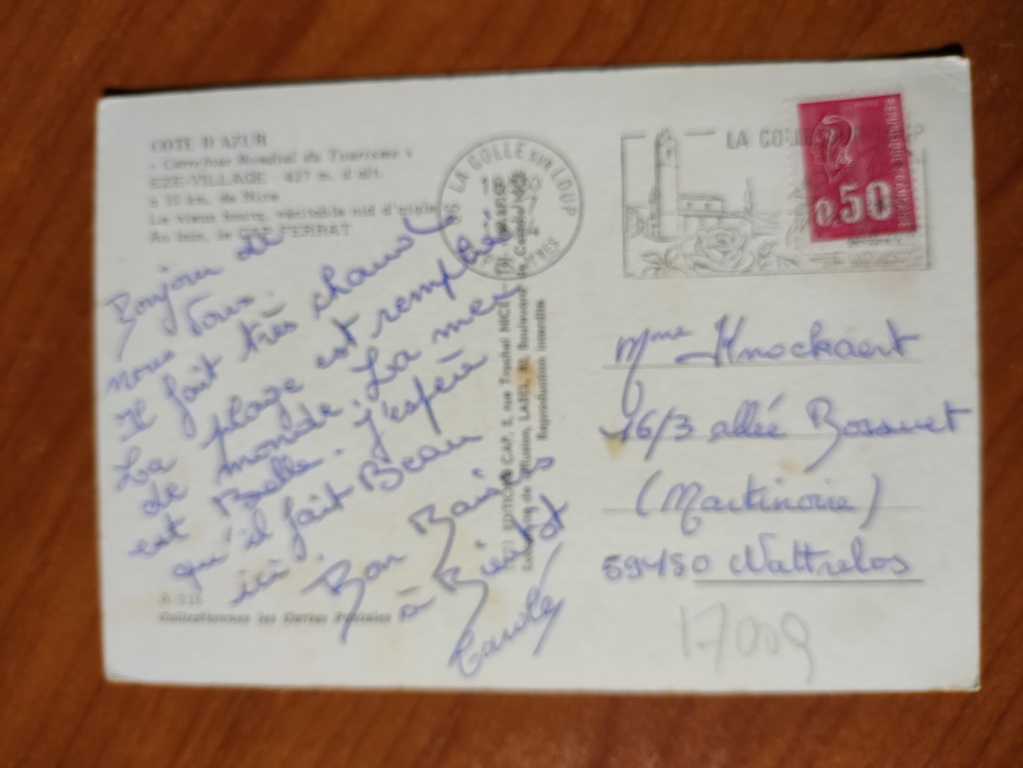 COTE D'AZUR
« Carrefour Mondial du Tourisme »
EZE-VILLAGE - 427 m. d'alt.
à 10 km. de Nice
Le vieux bourg, véritable nid d'aigle
Au loin, le CAP FERRAT
Bonjour de
nous Tous.
Il fait très chaud
La plage est remplie
de monde. La mer
est Baelle. J'espère
qu'il fait Beau
ici.
Bon Baisés
à Bientôt
Carole
A 315
Collectionnez les Cartes Postales
EDITIONS CAP, 2, rue Trachel NICE
LABEL, Boulevard
Reproduction interdite
LA COLLE SUR LOUP
LA COLLE
REPUBLIQUE FRANÇAISE
0,50
Mme Knockaert
16/3 allée Bossuet
(Martinoire)
59450 Wattrelos
17009